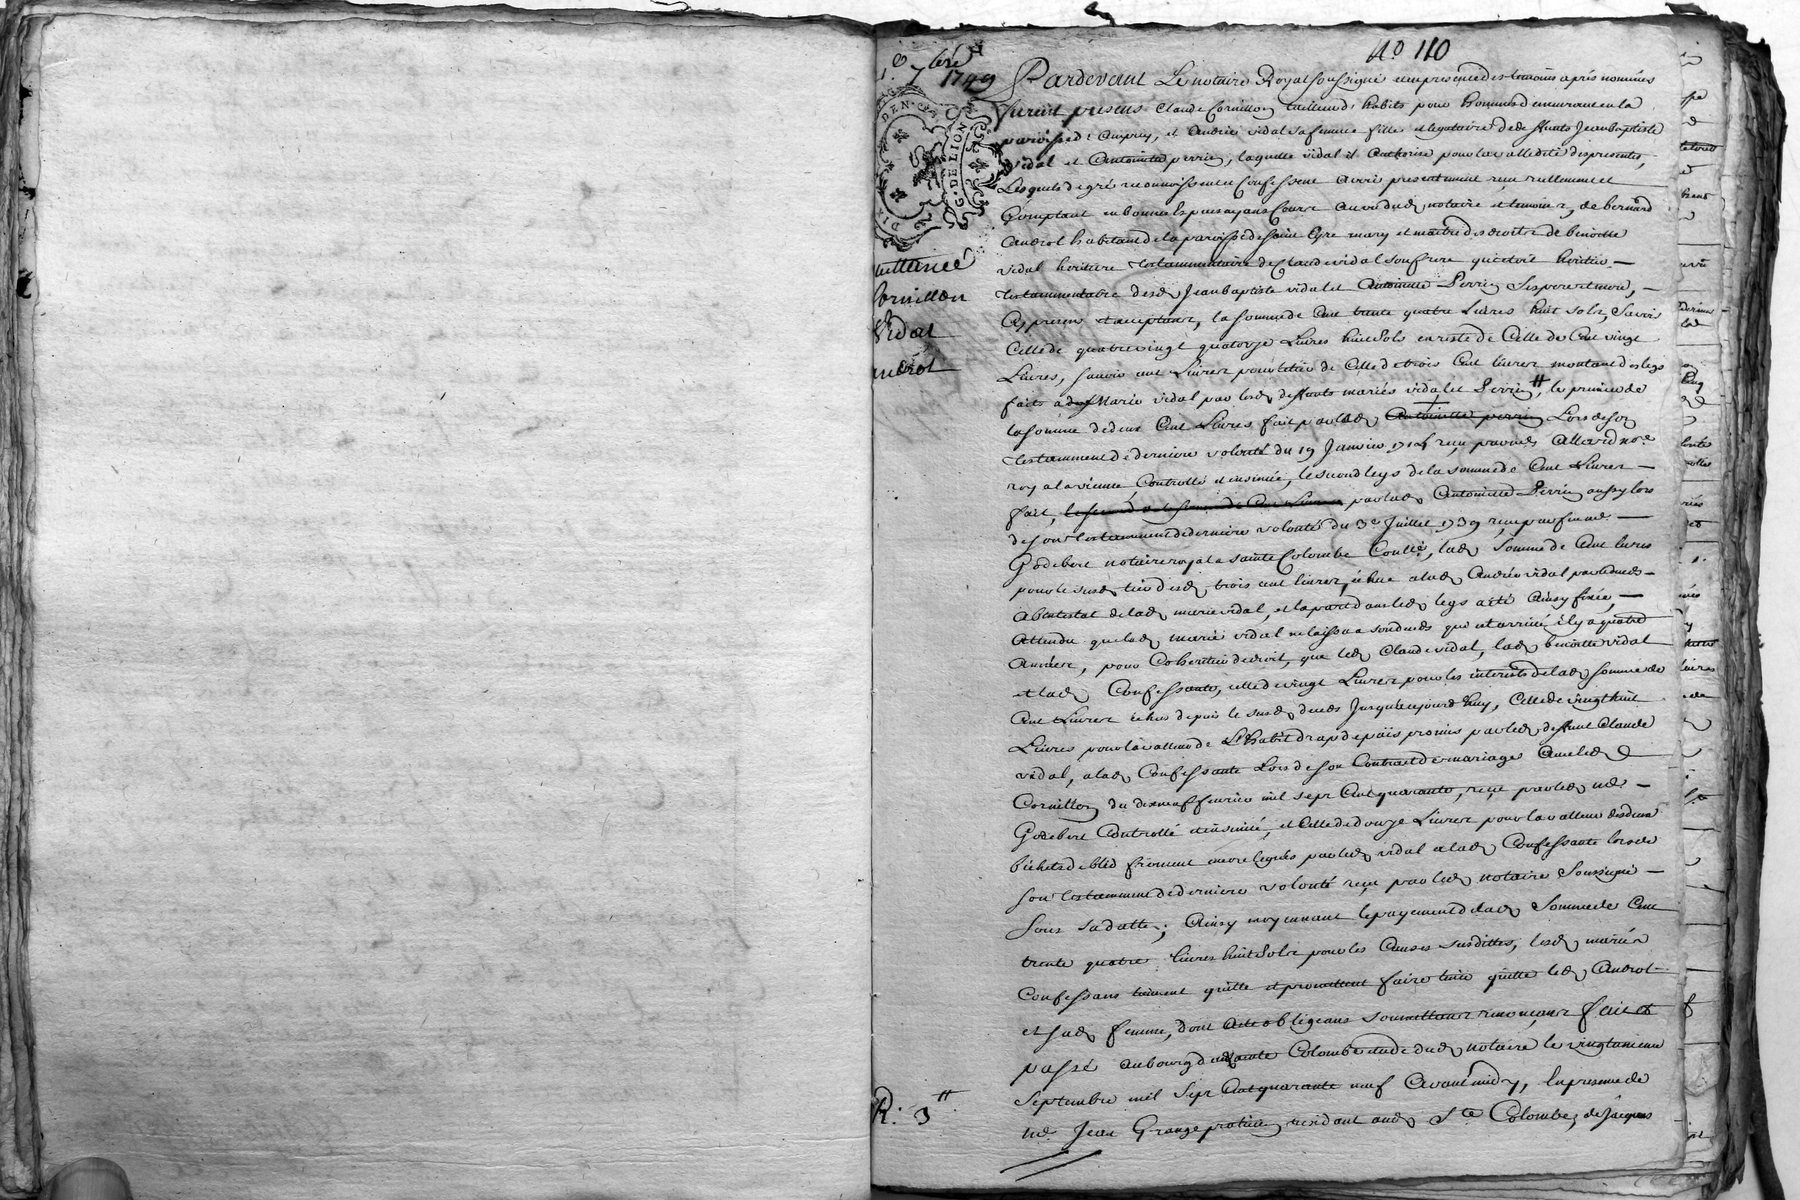 No 110
1.er 7bre
1749
Pardevant Le notaire Royal soussigné et en presence des temoins apres nommés
furent presens Claude Cornillon tailleur d'habits pour hommes demeurant en la
paroisse d' Ampuy, et Andrée vidal sa femme fille et legataire de deffunts Jean baptiste
vidal et Antoinette perrin, laquelle vidal il authorise pour la validité des presentes,
Lesquels de gré reconnoissent et Confessent avoir presentement reçu reellement et
Comptant en bonnes Especes ayans Cours au vû dud notaire et temoins, de bernard
Androt habitant de la paroisse de Saint Cyre mary et maitre des droits de benoitte
vidal heritiere testammentaire de Claude vidal son frere qui etoit heritier
testammentaire desd Jean baptiste vidal et Antoinette Perrin ses pere et mere,
Cy present et acceptant, la somme de Cent trente quatre Livres huit sols, Sçavoir
Celle de quatrevingt quatorze Livres huit Sols en reste de Celle de Cent vingt
Livres, sçavoir cent Livres pour le tiers de Celle de trois Cent livres montant des legs
faits à Marie vidal par lesd deffunts mariés vidal et Perrin, le premier de
la somme de deux Cent Livres fait par lad Antoinette perrin Lors de son
testamment de derniere volonté du 19 Janvier 1724 reçu par me Allard nore
roy a la vienne, Controllé et insinué, le second legs de la somme de Cent Livres
fait, par lad Antoinette Perrin aussy lors
de son testamment de derniere volonté du 3e Juillet 1739 reçu par feu me
Godebert notaire royal a sainte Colombe Conllé, lad Somme de Cent livres
pour le susd tiers desd trois cent livres, échue a lad Andrée vidal par le deces
abintestat de lad marie vidal, et la part dans led legs a été Ainsy fixée,
Attendu que lad marie vidal a son deces qui est arrivé il y a quatre
Années, pour Coheritiers de droit, que led Claude vidal, lad benoitte vidal
et lad Confessante, celle de vingt Livres pour les interests de lad somme de
Cent Livres échus depuis le susd deces Jusqu'aujourd'huy, Celle de vingt huit
Livres pour la valleur de L'habit drap de païs promis par led deffunt Claude
vidal, a lad Confessante Lors de son Contract de mariage Avec led
Cornillon du dixneuf fevrier mil sept Cent quarante, reçu par led me
Godebert Controllé et insinué, et Celle de douze Livres pour la valleur des deux
bichets de bled froment encore legués par led vidal a lad Confessante lors de
son testamment de derniere volonté reçu par led notaire Soussigné
sous sa datte; Ainsy moyennant le payement de lad Somme de Cent
trente quatre livres huit Sols pour les Causes susdittes, lesd mariés
Confessans tiennent quitte et promettent faire tenir quitte led Androt
et sad femme, dont acte obligeans soumettans renonçans fait et
passé au bourg de sainte Colombe etude dud notaire le vingt
Septembre mil Sept Cent quarante neuf Avant midy, En presence de
me Jean Grange praticien residant aud Ste Colombe, de Jacques
uittance
Cornillon
Vidal
androt
R: 3tt
G. DE LION